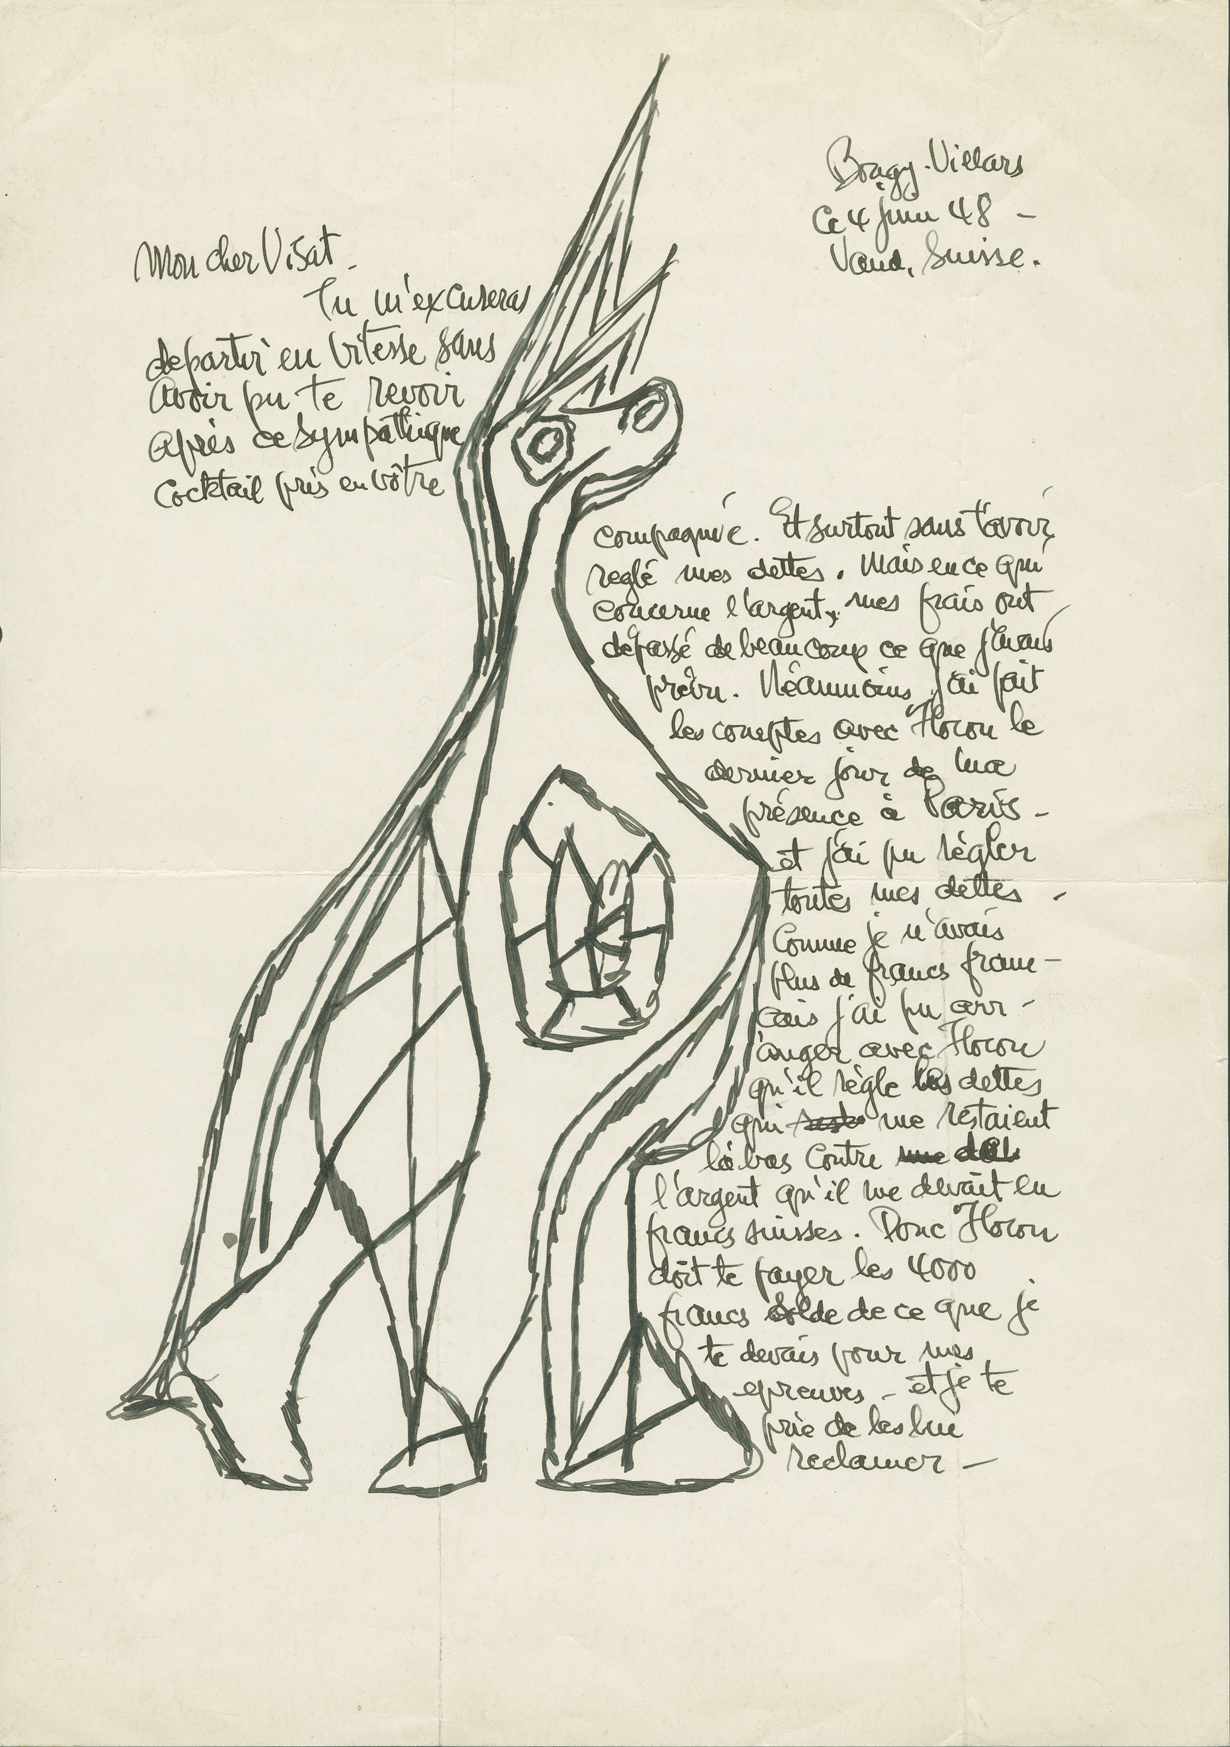 Bougy-Villars
Ce 4 juin 48 -
Vaud, Suisse.
Mon cher Visat -
Tu m'excuseras
de partir en vitesse sans
avoir pu te revoir
après ce sympathique
Cocktail pris en vôtre
compagnie. Et surtout sans t'avoir
reglé mes dettes. Mais en ce qui
concerne l'argent, mes frais ont
dépassé de beaucoup ce que j'avais
prévu. Néanmoins j'ai fait
les comptes avec Flocon le
dernier jour de ma
présence à Paris -
et j'ai pu régler
toutes mes dettes -
Comme je n'avais
plus de francs fran-
cais j'ai pu arr-
anger avec Flocon
qu'il règle les dettes
qui me restaient
là bas contre
l'argent qu'il me devait en
francs suisses. Donc Flocon
doit te payer les 4000
francs solde de ce que je
te devais pour mes
epreuves - et je te
prie de les lui
reclamer -